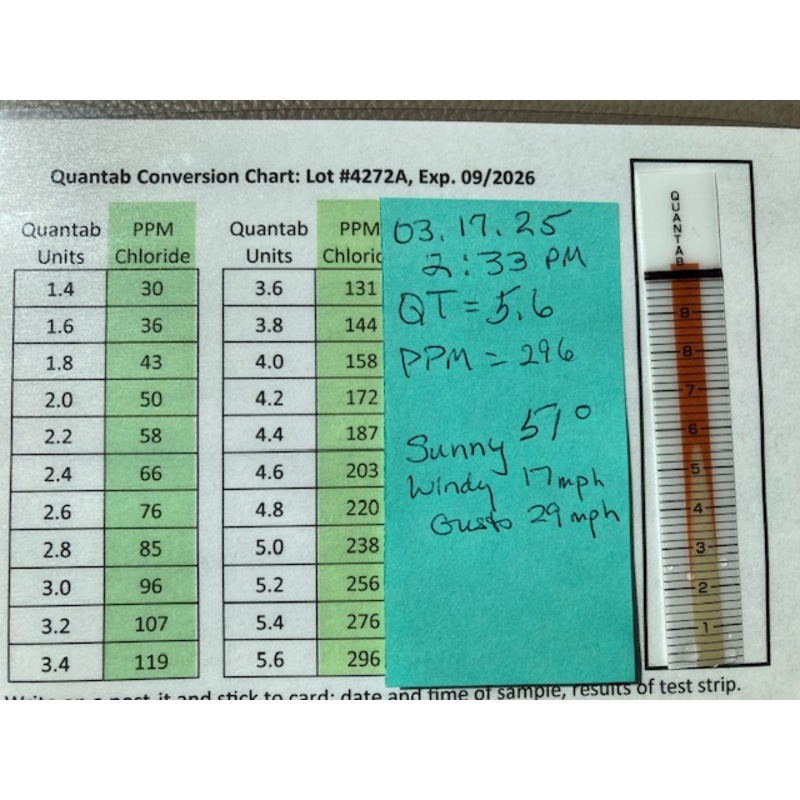 Quantab Conversion Chart: Lot #4272A, Exp. 09/2026
Quantab Units PPM Chloride
1.4 30
1.6 36
1.8 43
2.0 50
2.2 58
2.4 66
2.6 76
2.8 85
3.0 96
3.2 107
3.4 119
Quantab Units PPM
3.6 131
3.8 144
4.0 158
4.2 172
4.4 187
4.6 203
4.8 220
5.0 238
5.2 256
5.4 276
5.6 296
03.17.25
2:33 PM
QT = 5.6
PPM = 296
Sunny 57°
Windy 17mph
Gusts 29 mph
QUANTAB
9
8
7
6
5
4
3
2
1
post-it and stick to card: date and time of sample, results of test strip.